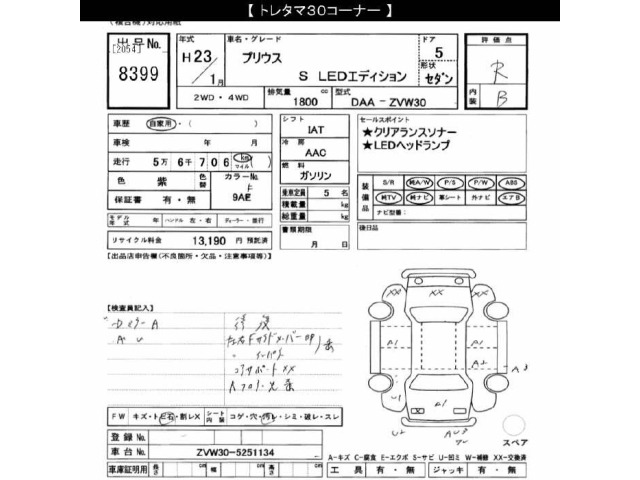 【 トレタマ30コーナー 】
(複合機)対応用紙
出品No. [2054] 8399
年式 H23/1月
車名・グレード プリウス S LEDエディション
ドア 5 形状 セダン
評価点 R
内装 B
2WD・4WD 排気量 1800 cc 型式 DAA-ZVW30
車歴 自家用・( )
車検 年 月
走行 5万6千706 km マイル
色 紫 色替 カラーNo. 9AE
保証書 有・無
モデル年式 年 ハンドル 左・右 ディーラー・並行
リサイクル料金 13,190 円 預託済
シフト IAT
冷房 AAC
燃料 ガソリン
乗車定員 5 名
積載量 kg
総重量 kg
書類期限 月 日
セールスポイント
★クリアランスソナー
★LEDヘッドランプ
装備品 S/R 純A/W P/S P/W ABS
純TV 純ナビ 革シート 外ナビ エアB
ナビ型番:
後日品
【出品店申告欄(不良箇所・欠品・注意事項等)】
【検査員記入】
修復
コアサポートXX
XX XX XX
A1 A1
A2 A3
U1 A1
U2 AU3
スペア
FW キズ・トビ石・割レX シート内装 コゲ・穴・汚レ・シミ・破レ・スレ
登録No.
車台No. ZVW30-5251134
車庫証明用 長さ cm 幅 cm 高さ cm
A-キズ C-腐食 E-エクボ S-サビ U-凹ミ W-補修 XX-交換済
工具 有・無 ジャッキ 有・無